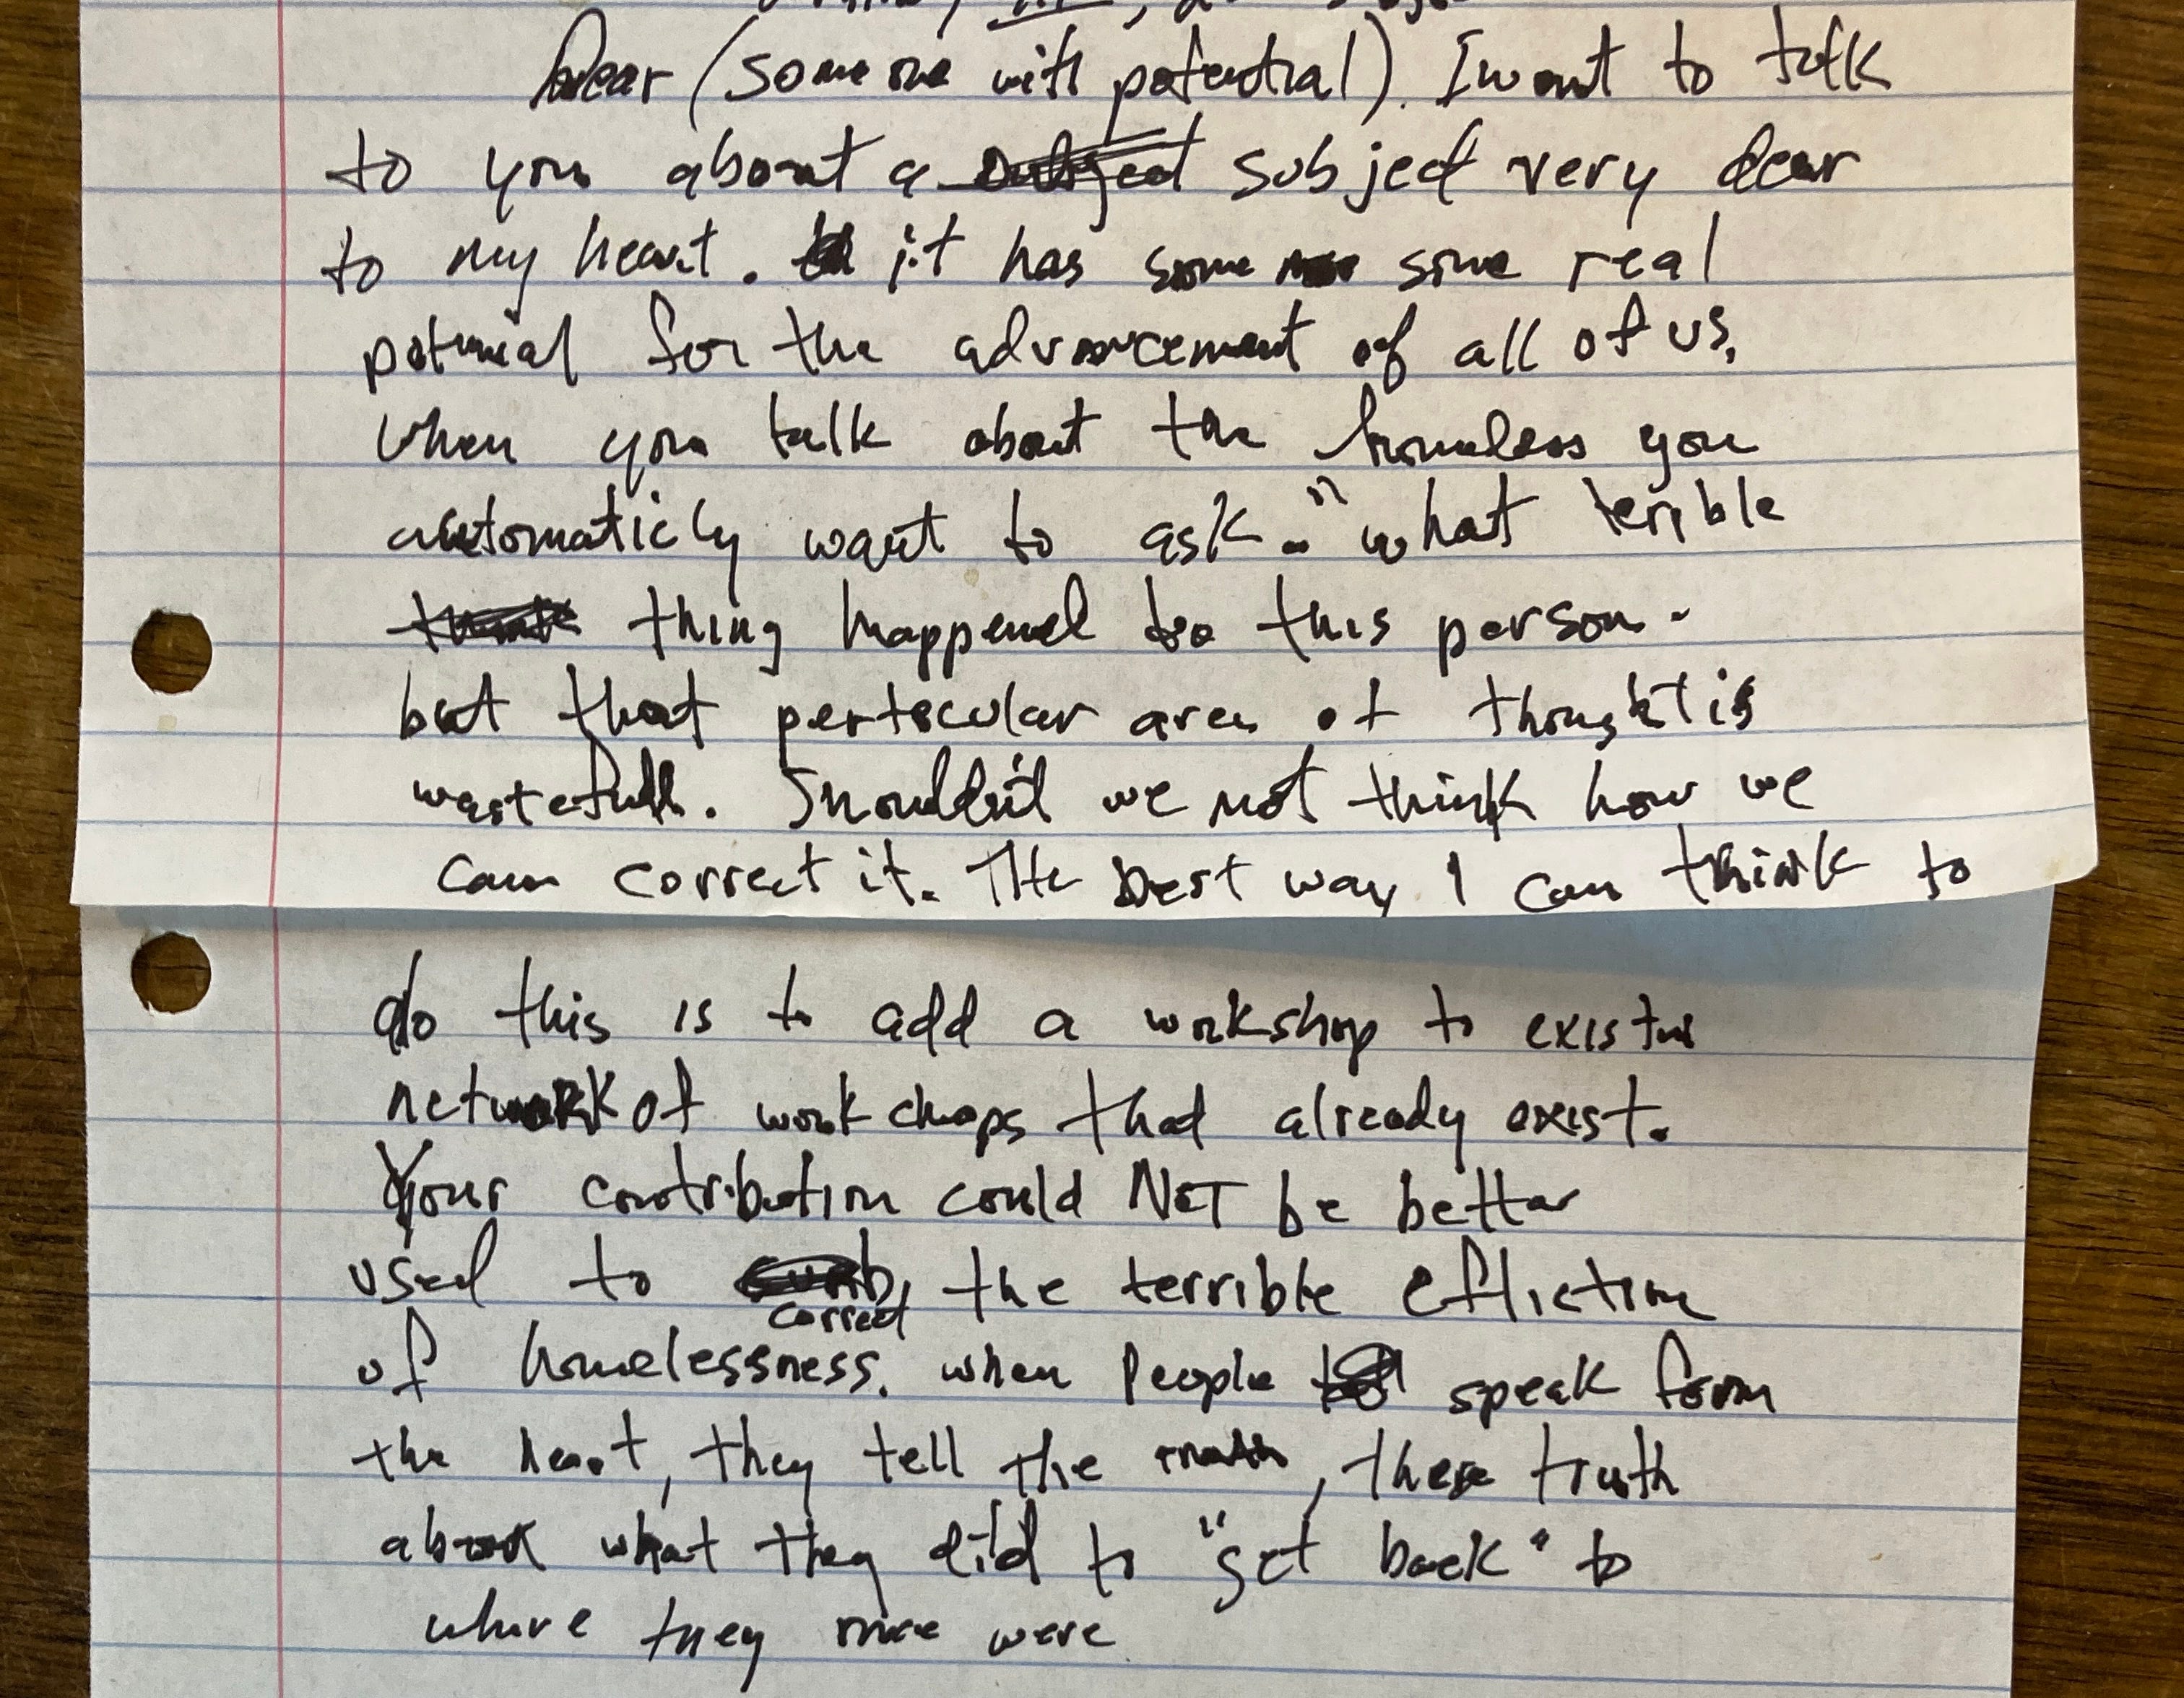 Dear (someone with potential). I want to talk
to you about a subject subject very dear
to my heart. it has some some real
potenial for the advancement of all of us.
When you talk about the homeless you
automaticly want to ask. "what terible
thing happened to this person.
but that perticular area of thought is
wastefull. Shouldn't we not think how we
can correct it. The best way I can think to
do this is to add a workshop to
network of work chops that already exist.
Your contribution could NOT be better
used to correct the terrible efliction
of homelessness. when people speak form
the heart, they tell the truth, there truth
about what they did to "get back" to
where they once were